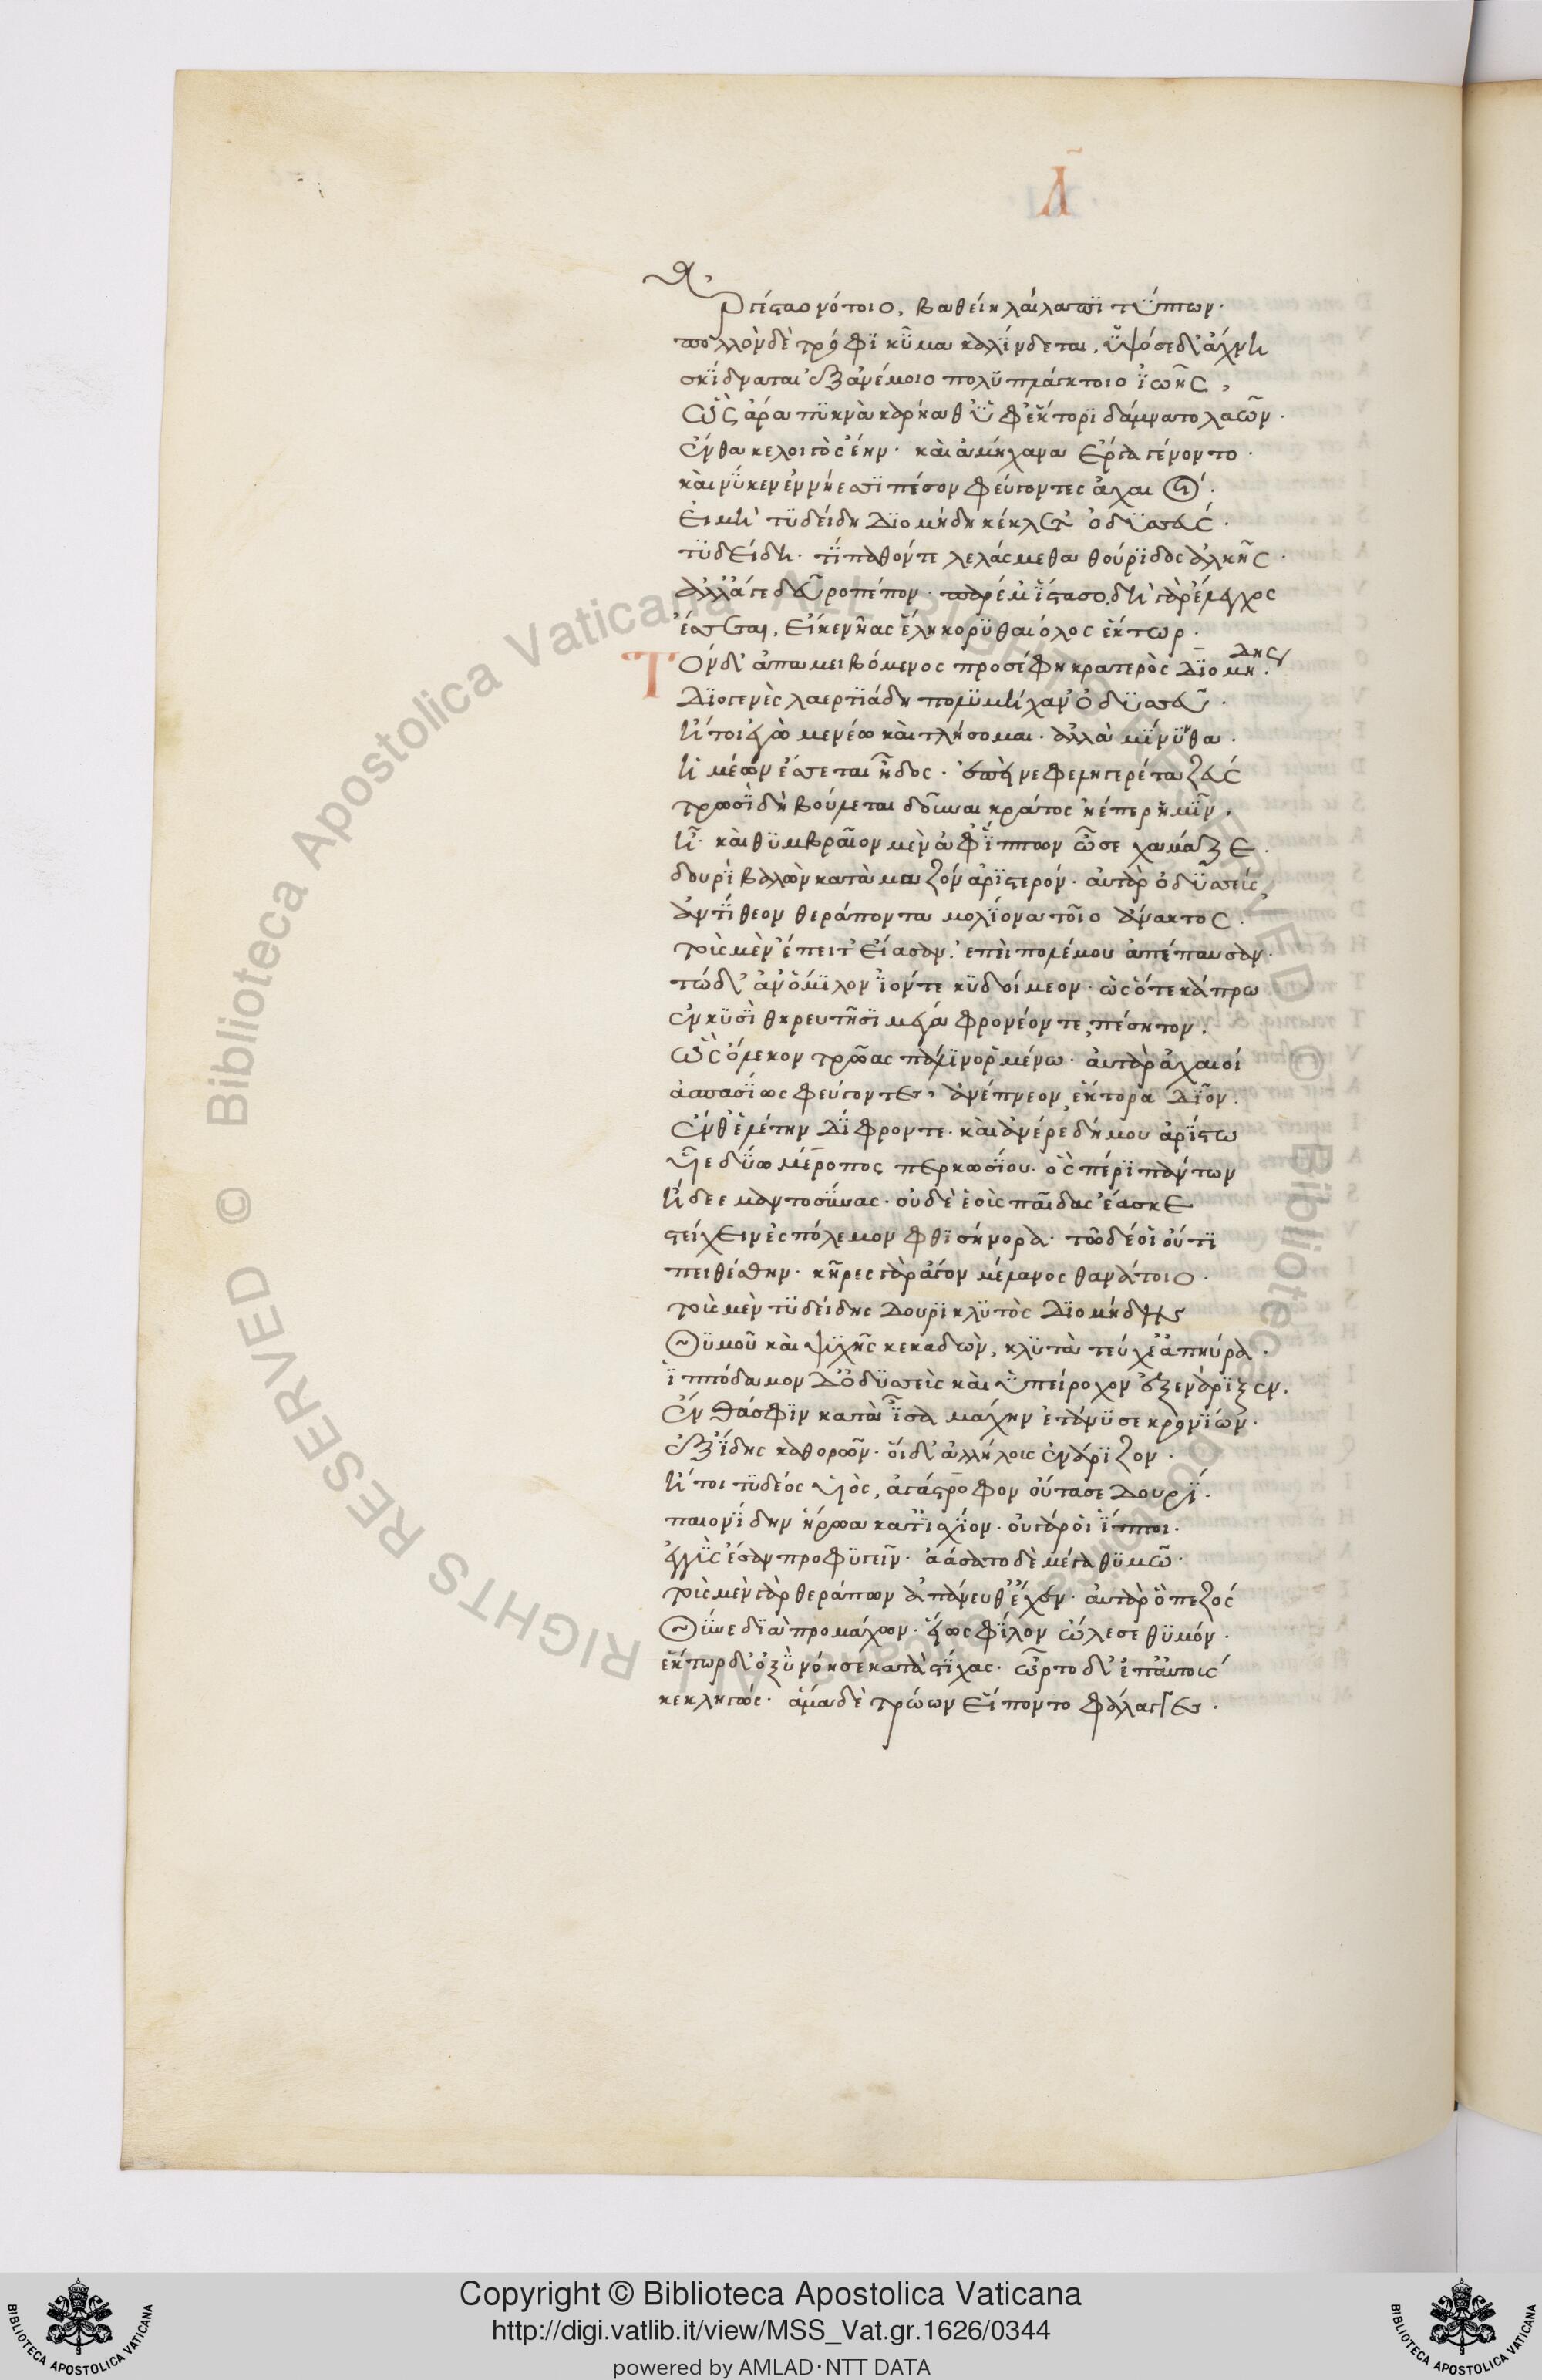 Λ̃
Ἀργέσταο νότοιο, βαθείη λαίλαπϊ τύπτων·
πολλὸν δὲ τρόφϊ κῦμα καλίνδεται, ὑψόσε δ' ἄχνη
σκίδναται ἐξ ἀνέμοιο πολυπλάγκτοιο ἰωῆς,
ὣς ἄρα πυκνὰ καρήαθ' ὑφ' ἕκτορι δάμνατο λαῶν.
ἔνθα κε λοιγὸς ἔην· καὶ ἀμήχανα ἔργα γένοντο·
καί νύ κεν ἐν νήεσσι πέσον φεύγοντες ἀχαιοί·
εἰ μὴ τυδείδη Διομήδη κέκλετ' ὀδυσσεύς·
τυδείδη· τί παθόντε λελάσμεθα θούριδος ἀλκῆς·
ἀλλ' ἄγε δεῦρο πέπον· παρ' ἔμ' ἵστασο, δὴ γὰρ ἔλεγχος
ἔσσεται, εἴ κεν νῆας ἕλη κορυθαίολος ἕκτωρ·
Τὸν δ' ἀπαμειβόμενος προσέφη κρατερὸς Διομήδης·
Διογενὲς λαερτιάδη πολυμήχαν' ὀδυσσεῦ·
ἤτοι ἐγὼ μενέω καὶ τλήσομαι· ἀλλὰ μίνυνθα·
ἡμέων ἔσσεται ἦδος· ἐπεὶ νεφεληγερέτα ζεύς
τρωσὶ δὴ βούλεται δοῦναι κράτος ἠέπερ ἡμῖν·
ἦ· καὶ θυμβραῖον μὲν ἀφ' ἵππων ὦσε χαμᾶζε·
δουρὶ βαλὼν κατὰ μαζὸν ἀριστερόν· αὐτὰρ ὀδυσσεύς
ἀντίθεον θεράποντα μολίονα τοῖο ἄνακτος·
τοὺς μὲν ἔπειτ' εἴασαν· ἐπεὶ πολέμου ἀπέπαυσαν·
τὼ δ' ἀν' ὅμιλον ἰόντε κυδοίμεον· ὡς ὅτε κάπρω
ἐν κυσὶ θηρευτῆσι μέγα φρονέοντε πέσητον·
ὣς ὄλεκον τρῶας πάλιν ὀρμένω· αὐτὰρ ἀχαιοί
ἀσπασίως φεύγοντες, ἀνέπνεον ἕκτορα Δῖον.
ἔνθ' ἑλέτην Δίφρον τε· καὶ ἀνέρε δήμου ἀρίστω
υἷε δύω μέροπος περκωσίου· ὃς πέρι πάντων
ἤδεε μαντοσύνας· οὐδὲ ἑοὺς παῖδας ἔασκε
στείχειν ἐς πόλεμον φθισήνορα· τὼ δέ οἱ οὔτι
πειθέσθην· κῆρες γὰρ ἄγον μέλανος θανάτοιο·
τοὺς μὲν τυδείδης Δουρὶ κλυτὸς Διομήδης
Θυμοῦ καὶ ψυχῆς κεκαδών, κλυτὰ τεύχε' ἀπηύρα·
ἱππόδαμον Δ' ὀδυσσεὺς καὶ ὑπείροχον ἐξενάριξεν.
ἔνθά σφιν κατὰ ἶσα μάχην ἐτάνυσε κρονίων·
ἐξ ἴδης καθορῶν· οἱ δ' ἀλλήλους ἐνάριζον·
ἤτοι τυδέος υἱός, ἀγάστροφον οὔτασε Δουρί·
παιονίδην ἥρωα κατ' ἰσχίον· οὐ γάρ οἱ ἵπποι·
ἐγγὺς ἔσαν προφυγεῖν· ἀάσατο δὲ μέγα θυμῶ·
τοὺς μὲν γὰρ θεράπων ἀπάνευθ' ἔχεν· αὐτὰρ ὁ πεζός
Θῦνε διὰ προμάχων· ἕως φίλον ὤλεσε θυμόν·
ἕκτωρ δ' ὀξὺ νόησε κατὰ στίχας· ὦρτο δ' ἐπ' αὐτούς
κεκληγώς· ἅμα δὲ τρώων εἵποντο φάλαγγες·
Copyright © Biblioteca Apostolica Vaticana
http://digi.vatlib.it/view/MSS_Vat.gr.1626/0344
powered by AMLAD·NTT DATA